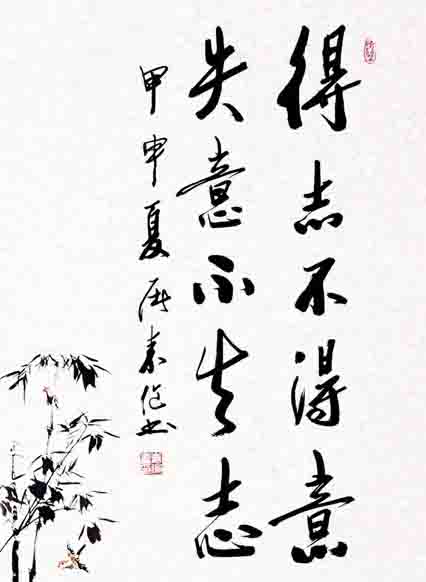 得志不得意
失意不失志
甲申夏书